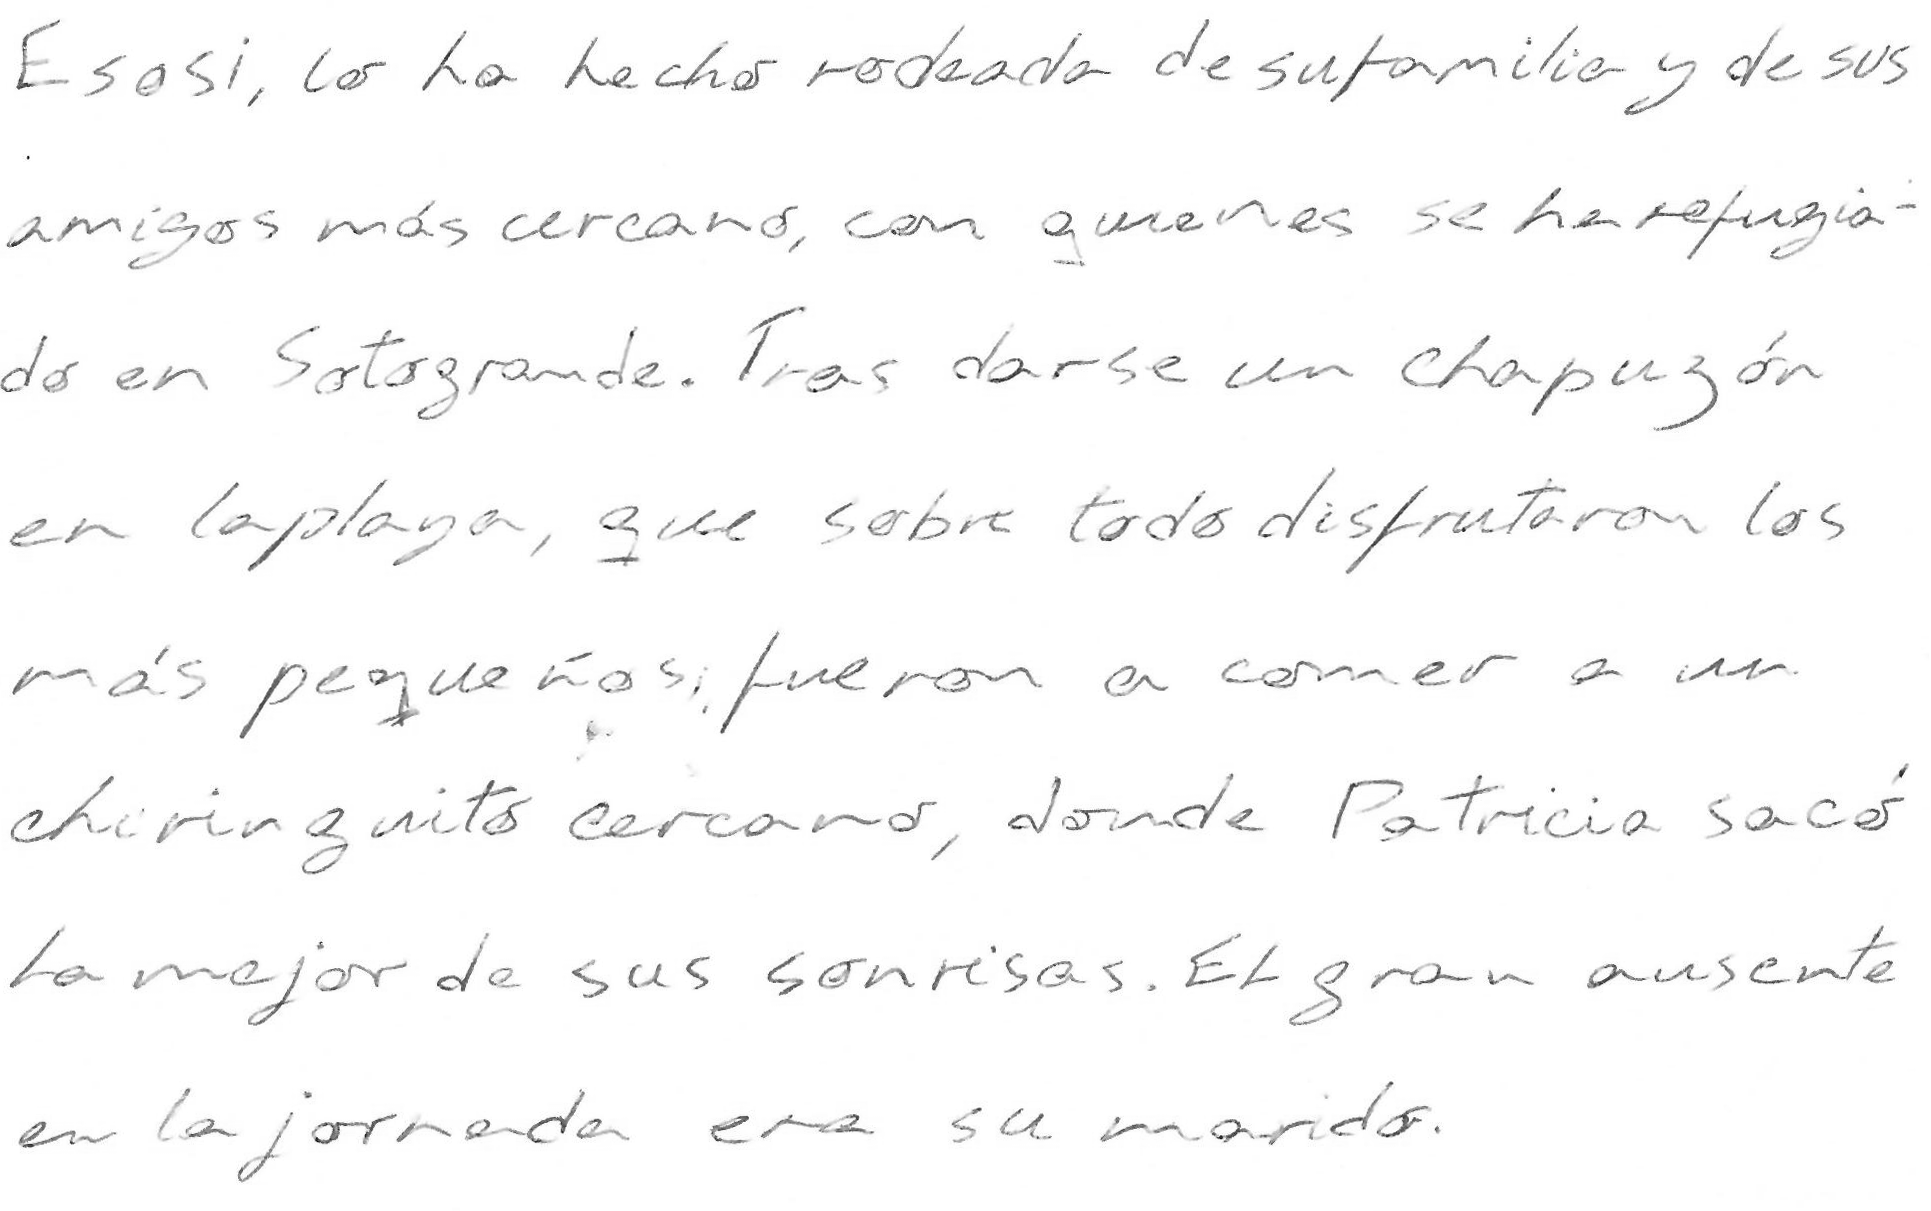 Eso si, lo ha hecho rodeada de su familia y de sus
amigos más cercano, con quienes se ha refugia-
do en Sotogrande. Tras darse un chapuzón
en la playa, que sobre todo disfrutaron los
más pequeños, fueron a comer a un
chiringuito cercano, donde Patricia sacó
la mejor de sus sonrisas. El gran ausente
en la jornada era su marido.